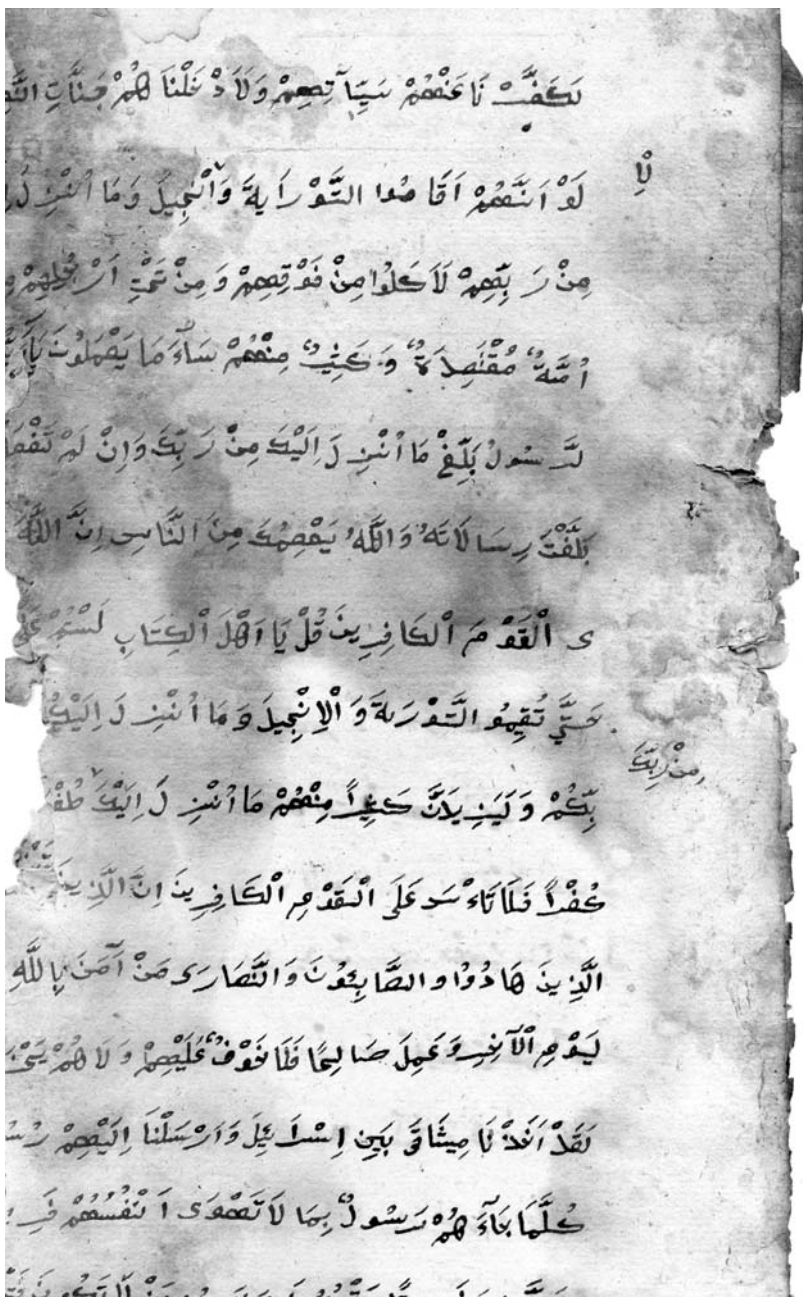 لَكَفَّرْ نَا عَنْهُمْ سَيِّآتِهِمْ وَلَاَدْ خَلْنَا هُمْ جَنَّاتِ
لَوْ اَنَّهُمْ اَقَا مُوا التَّوْرَايةَ وَالْنْجِيلَ وَمَا اُنْزِ لَ
لْاِ
مِنْ رَ بِّهِمْ لَاَ كَلُوا مِنْ فَوْقِهِمْ وَ مِنْ تَحْتِ اَرْ جُلِهِمْ
اُمَّةٌ مُقْتَصِدَ ةٌ وَ كَثِيرٌ مِنْهُمْ سَاءَ مَا يَعْمَلُونَ
لرَّ سُولُ بَلِّغْ مَا اُنْزِ لَ اِلَيْكَ مِنْ رَ بِّكَ وَاِنْ لَمْ
بَلَّغْتَ رِسَا لَاتَهُ وَ اللَّهُ يَعْصِمُكَ مِنَ النَّاسِ اِنَّ اللَّهَ
ى الْقَوْ مَ الْكَا فِرِينَ قُلْ يَا اَهْلَ الْكِتَابِ لَسْتُمْ
حَتَّي تُقِيمُو التَّوْرَيةَ وَ الْاِنْجِيلَ وَ مَا اُنْزِ لَ
مِنْ رَبِّكَ
بِّكُمْ وَ لَيَزِ يدَنَّ كَثِيراً مِنْهُمْ مَا اُنْزِ لَ اِلَيْكَ
كُفْراً فَلَا تَاءْ سَ عَلَى الْقَوْمِ الْكَا فِرِينَ اِنَّ الَّذِينَ
الَّذِينَ هَا دُوْا و الصَّا بِئُونَ وَ النَّصَا رَى مَنْ آمَنَ بِا للَّهِ
لَيَوْ مِ الْآخِرِ وَ عَمِلَ صَا لِحًا فَلَا خَوْفٌ عَلَيْهِمْ وَ لَا هُمْ
لَقَدْ اَخَذْ نَا مِيثَا قَ بَنِي اِسْرَا ئِيلَ وَ اَرْ سَلْنَا اِلَيْهِمْ
كُلَّمَا جَاءَ هُمْ رَسُولٌ بِمَا لَا تَهْوَى اَنْفُسُهُمْ